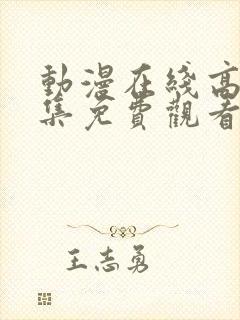 動漫在綫高
集免費觀看
王志勇